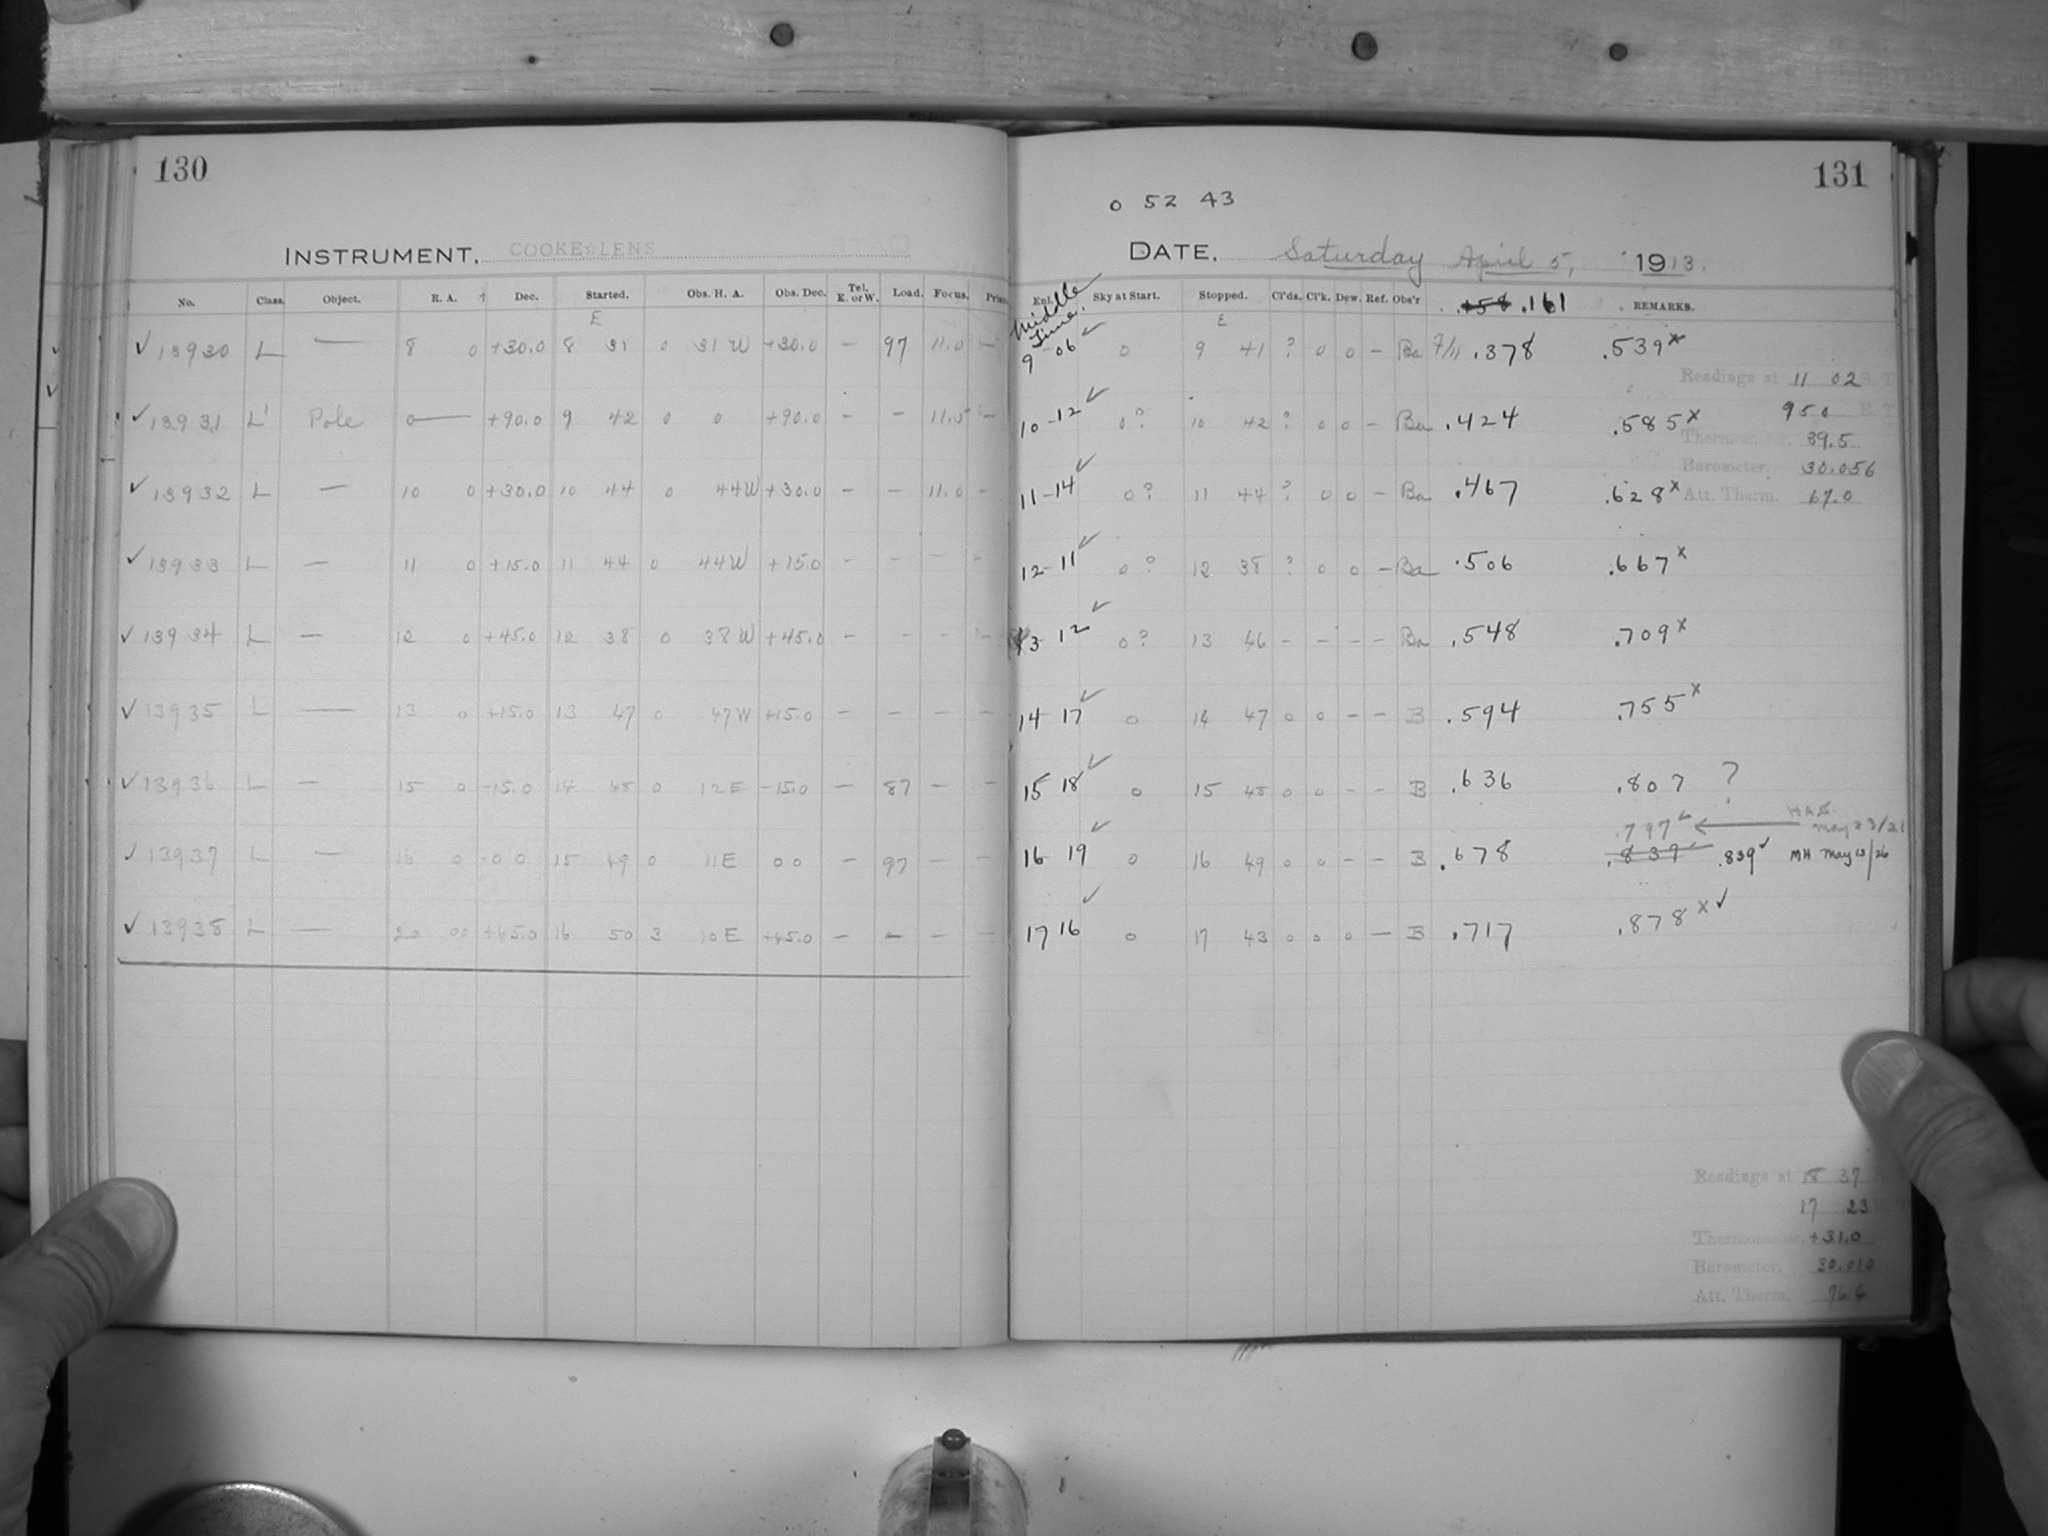 130
INSTRUMENT, COOKE LENS
No. Class. Object. R. A. Dec. Started. Obs. H. A. Obs. Dec. Tel. E. or W. Load. Focus.
E
✓ 13930 L — 8 0 +30.0 8 31 0 31 W +30.0 — 97 11.0 —
✓ 13931 L' Pole 0 — +90.0 9 42 0 0 +90.0 — — 11.5 —
✓ 13932 L — 10 0 +30.0 10 44 0 44W +30.0 — — 11.0 —
✓ 13933 L — 11 0 +15.0 11 44 0 44W +15.0 — — — —
✓ 13934 L — 12 0 +45.0 12 38 0 38W +45.0 — — — —
✓ 13935 L — 13 0 +15.0 13 47 0 47W +15.0 — — — —
✓ 13936 L — 15 0 -15.0 14 48 0 12E -15.0 — 87 — —
✓ 13937 L — 16 0 0 0 15 49 0 11E 0 0 — 97 — —
✓ 13938 L — 20 00 +45.0 16 50 3 10E +45.0 — — — —
131
0 52 43
DATE, Saturday April 5, 1913.
Middle Time. Sky at Start. Stopped. Cl'ds. Cl'k. Dew. Ref. Obs'r .161 REMARKS.
E
9-06 ✓ 0 9 41 ? 0 0 — Ba 7/11 .378 .539x
Readings at 11 02 S. T.
10-12 ✓ 0? 10 42 ? 0 0 — Ba .424 .585x
950 E. T.
Thermometer. 39.5
Barometer. 30.056
11-14 ✓ 0? 11 44 ? 0 0 — Ba .467 .628x
Att. Therm. 67.0
12-11 ✓ 0? 12 38 ? 0 0 — Ba .506 .667x
13-12 ✓ 0? 13 46 — — — — Ba .548 .709x
14-17 ✓ 0 14 47 0 0 — — B .594 .755x
15 18 ✓ 0 15 48 0 0 — — B .636 .807 ?
.797 ✓ ← May 23/21
16-19 ✓ 0 16 49 0 0 — — B .678 .839 .839 ✓ MH May 13/26
17 16 ✓ 0 17 43 0 0 0 — B .717 .878x ✓
Readings at 18 37
17 23
Thermometer. +31.0
Barometer. 30.010
Att. Therm. 76.4